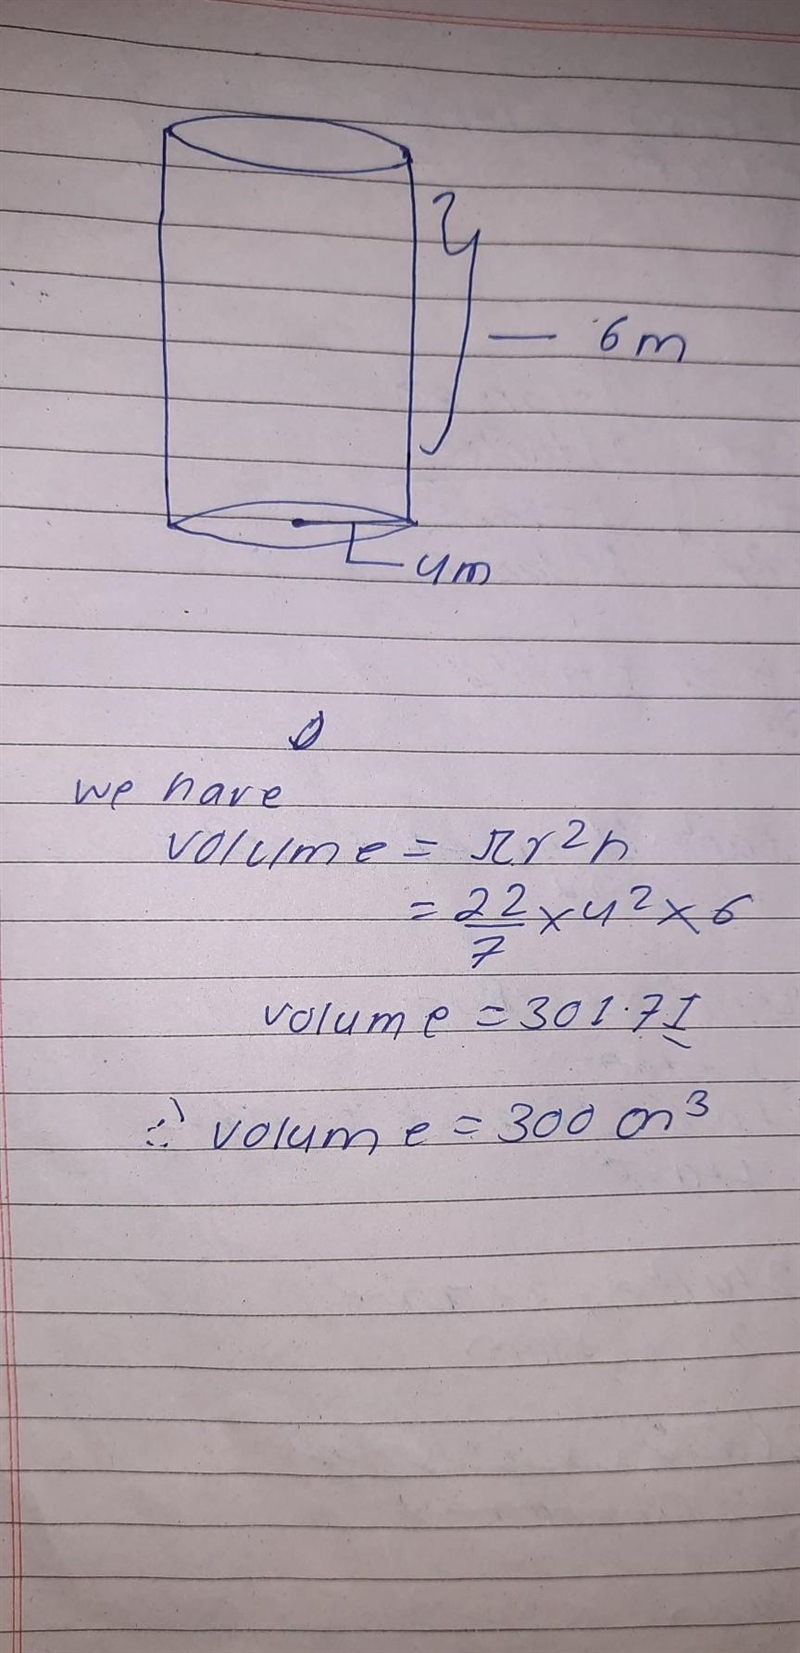 6m
4m
we have
volume = πr²h
= 22/7 × 4² × 6
volume = 301.71
∴ volume = 300 cm³